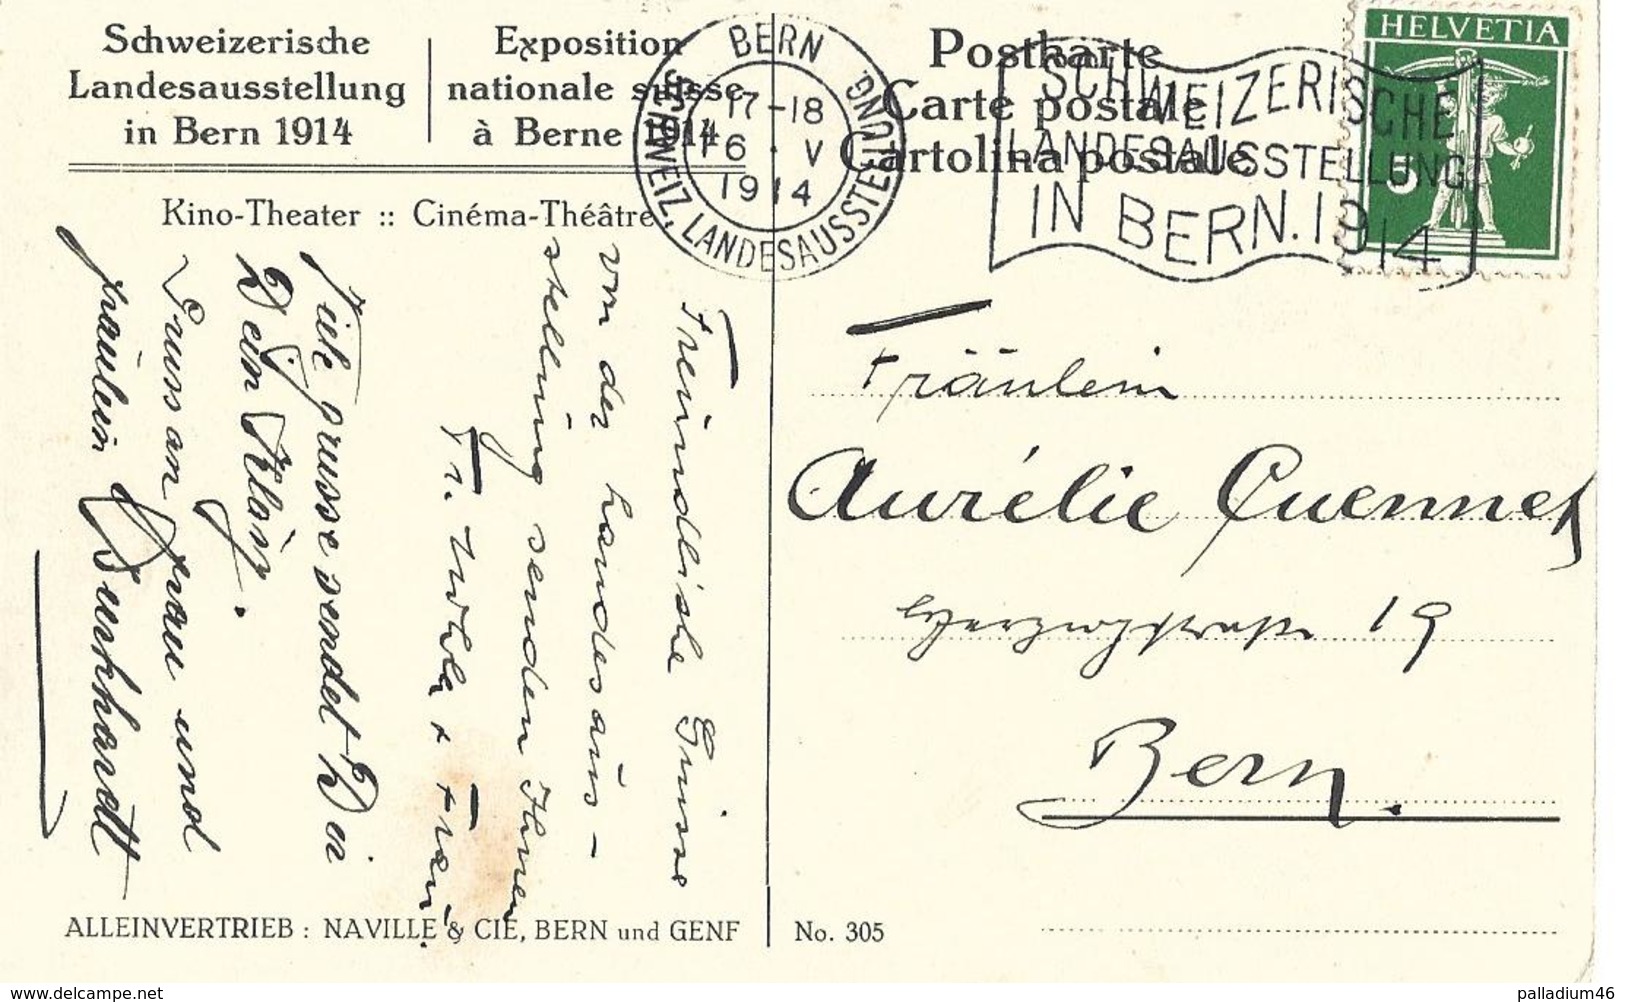 Schweizerische
Landesausstellung
in Bern 1914
Exposition
nationale suisse
à Berne 1914
Kino-Theater :: Cinéma-Théâtre
BERN
17-18
16 . V
1914
SCHWEIZ. LANDESAUSSTELLUNG
Postkarte
Carte postale
Cartolina postale
SCHWEIZERISCHE
LANDESAUSSTELLUNG
IN BERN. 1914
HELVETIA
5
Freundliche Grüsse
von der Landesaus-
stellung senden Ihnen
Fr. & Frau
Viele grüsse sendet Dir
Dein
Gruss an Frau und
fräulein Burkhardt
Fräulein
Aurélie Quennet
Herzogstrasse 19
Bern.
ALLEINVERTRIEB: NAVILLE & CIE, BERN und GENF
No. 305
http://www.delcampe.net
palladium46